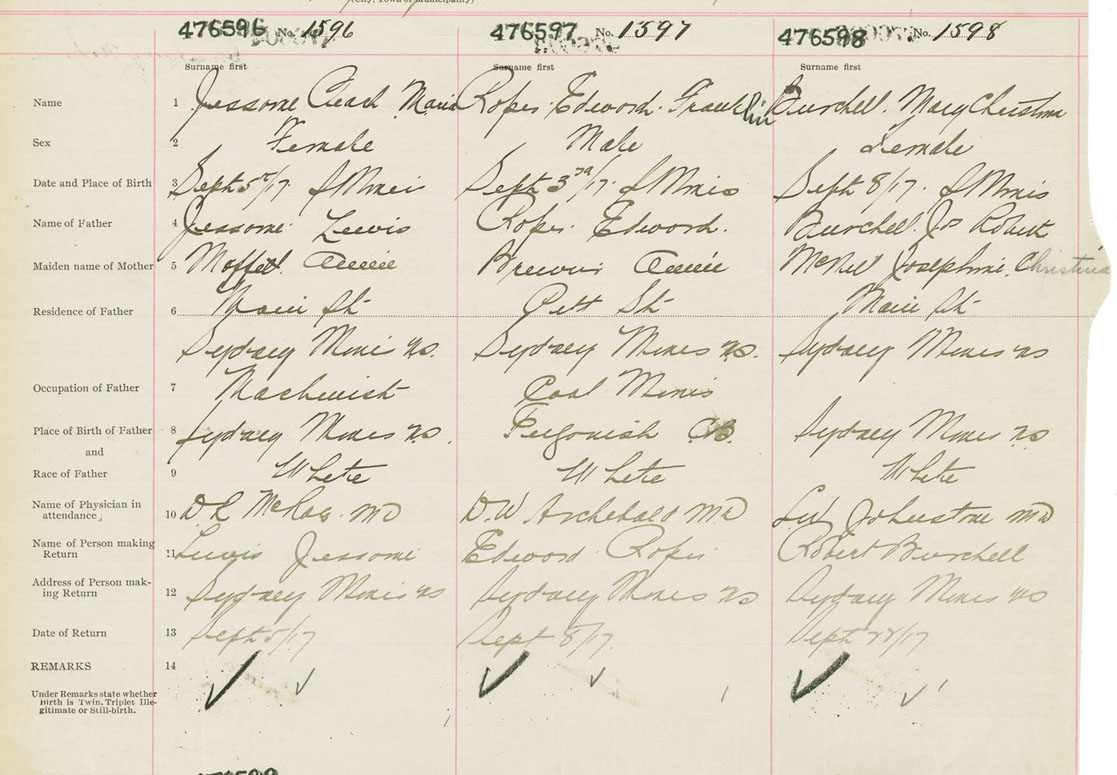 (City, Town or Municipality)
476596 No. 1596 476597 No. 1597 476598 No. 1598
Surname first Surname first Surname first
Name 1 Jessome Maria Ropes. Edword. Franklin Burchell. Mary Christina
Sex 2 Female Male Female
Date and Place of Birth 3 Sept 5th/17. S Mines Sept 3rd/17. S Mines Sept 8/17. S Mines
Name of Father 4 Jessome Lewis Ropes. Edword. Burchell. Robert
Maiden name of Mother 5 Moffett Annie Annie McNeil Josephine. Christina
Residence of Father 6 Main St Pitt St Main St
Sydney Mines ns. Sydney Mines ns. Sydney Mines ns
Occupation of Father 7 Machinist Coal Mines
Place of Birth of Father 8 Sydney Mines ns. CB. Sydney Mines ns
and
Race of Father 9 White White White
Name of Physician in
attendance 10 MD D.W Archebald MD Johnstone MD
Name of Person making
Return 11 Lewis Jessome Edword Ropes Robert Burchell
Address of Person mak-
ing Return 12 Sydney Mines ns Sydney Mines ns Sydney Mines ns
Date of Return 13 Sept 5/17 Sept 8/17. Sept 28/17
REMARKS 14
Under Remarks state whether
Birth is Twin, Triplet Ille-
gitimate or Still-birth.